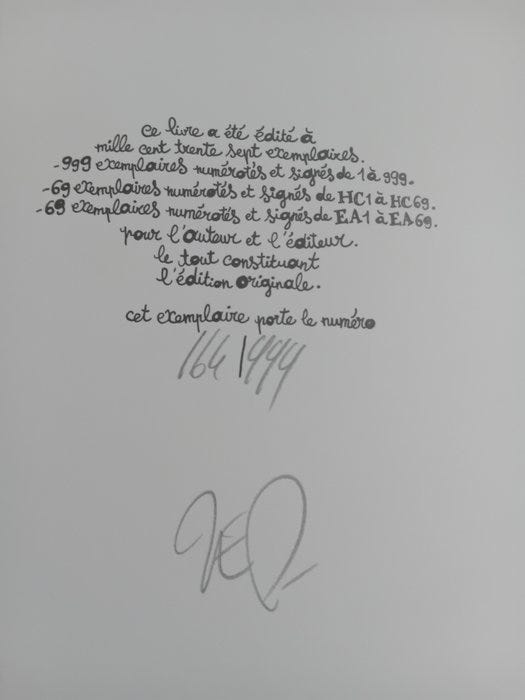 ce livre a été édité à
mille cent trente sept exemplaires.
-999 exemplaires numérotés et signés de 1 à 999.
-69 exemplaires numérotés et signés de HC1 à HC69.
-69 exemplaires numérotés et signés de EA1 à EA69.
pour l'auteur et l'éditeur.
le tout constituant
l'édition originale.
cet exemplaire porte le numéro
164/999